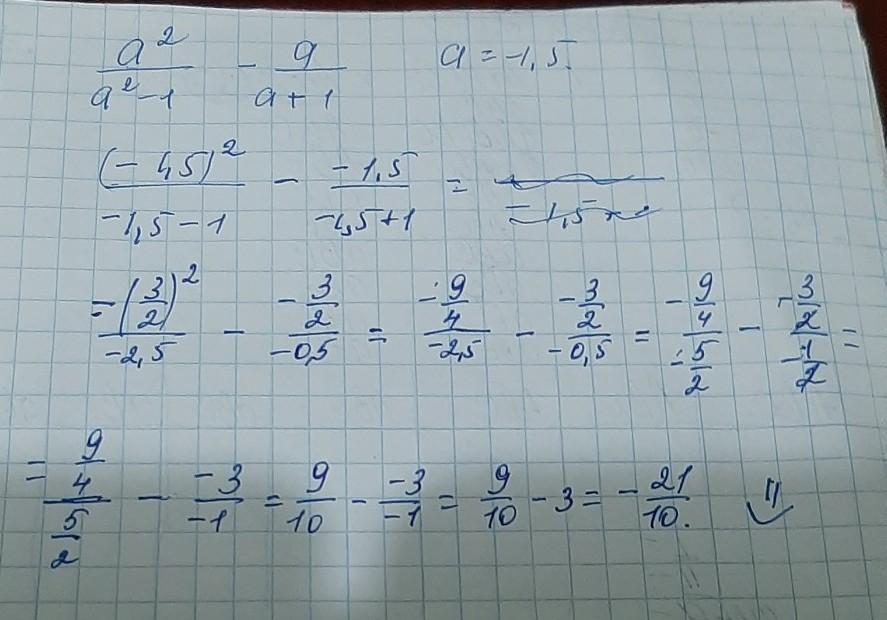 a² / (a² - 1) - a / (a + 1)    a = -1,5.
(-1,5)² / (-1,5 - 1) - (-1,5) / (-1,5 + 1) =
= -(3/2)² / (-2,5) - (-3/2) / (-0,5) = (-9/4) / (-2,5) - (-3/2) / (-0,5) = (-9/4) / (-5/2) - (-3/2) / (-1/2) =
= (9/4) / (5/2) - (-3) / (-1) = 9/10 - (-3) / (-1) = 9/10 - 3 = -21/10.